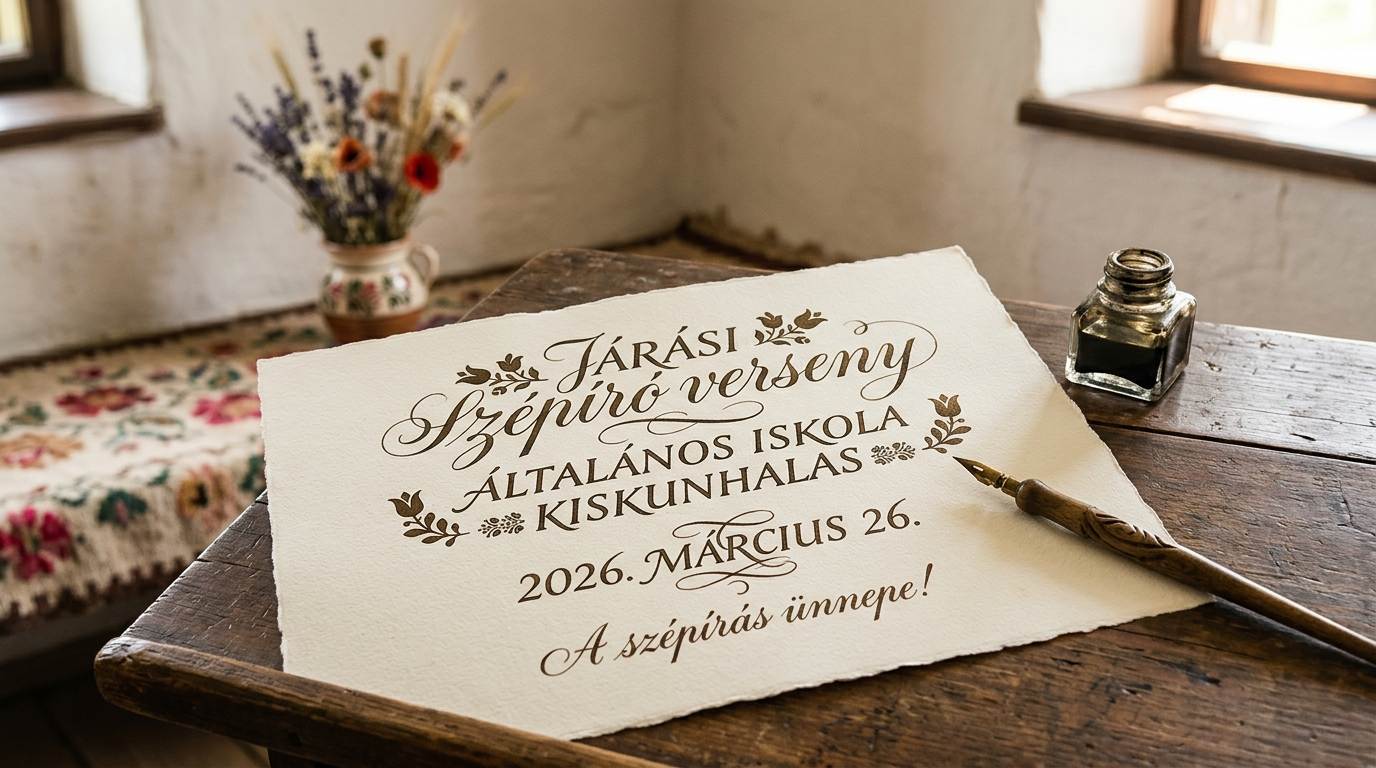 JÁRÁSI
Szépíró verseny
ÁLTALÁNOS ISKOLA
KISKUNHALAS
2026. MÁRCIUS 26.
A szépírás ünnepe!